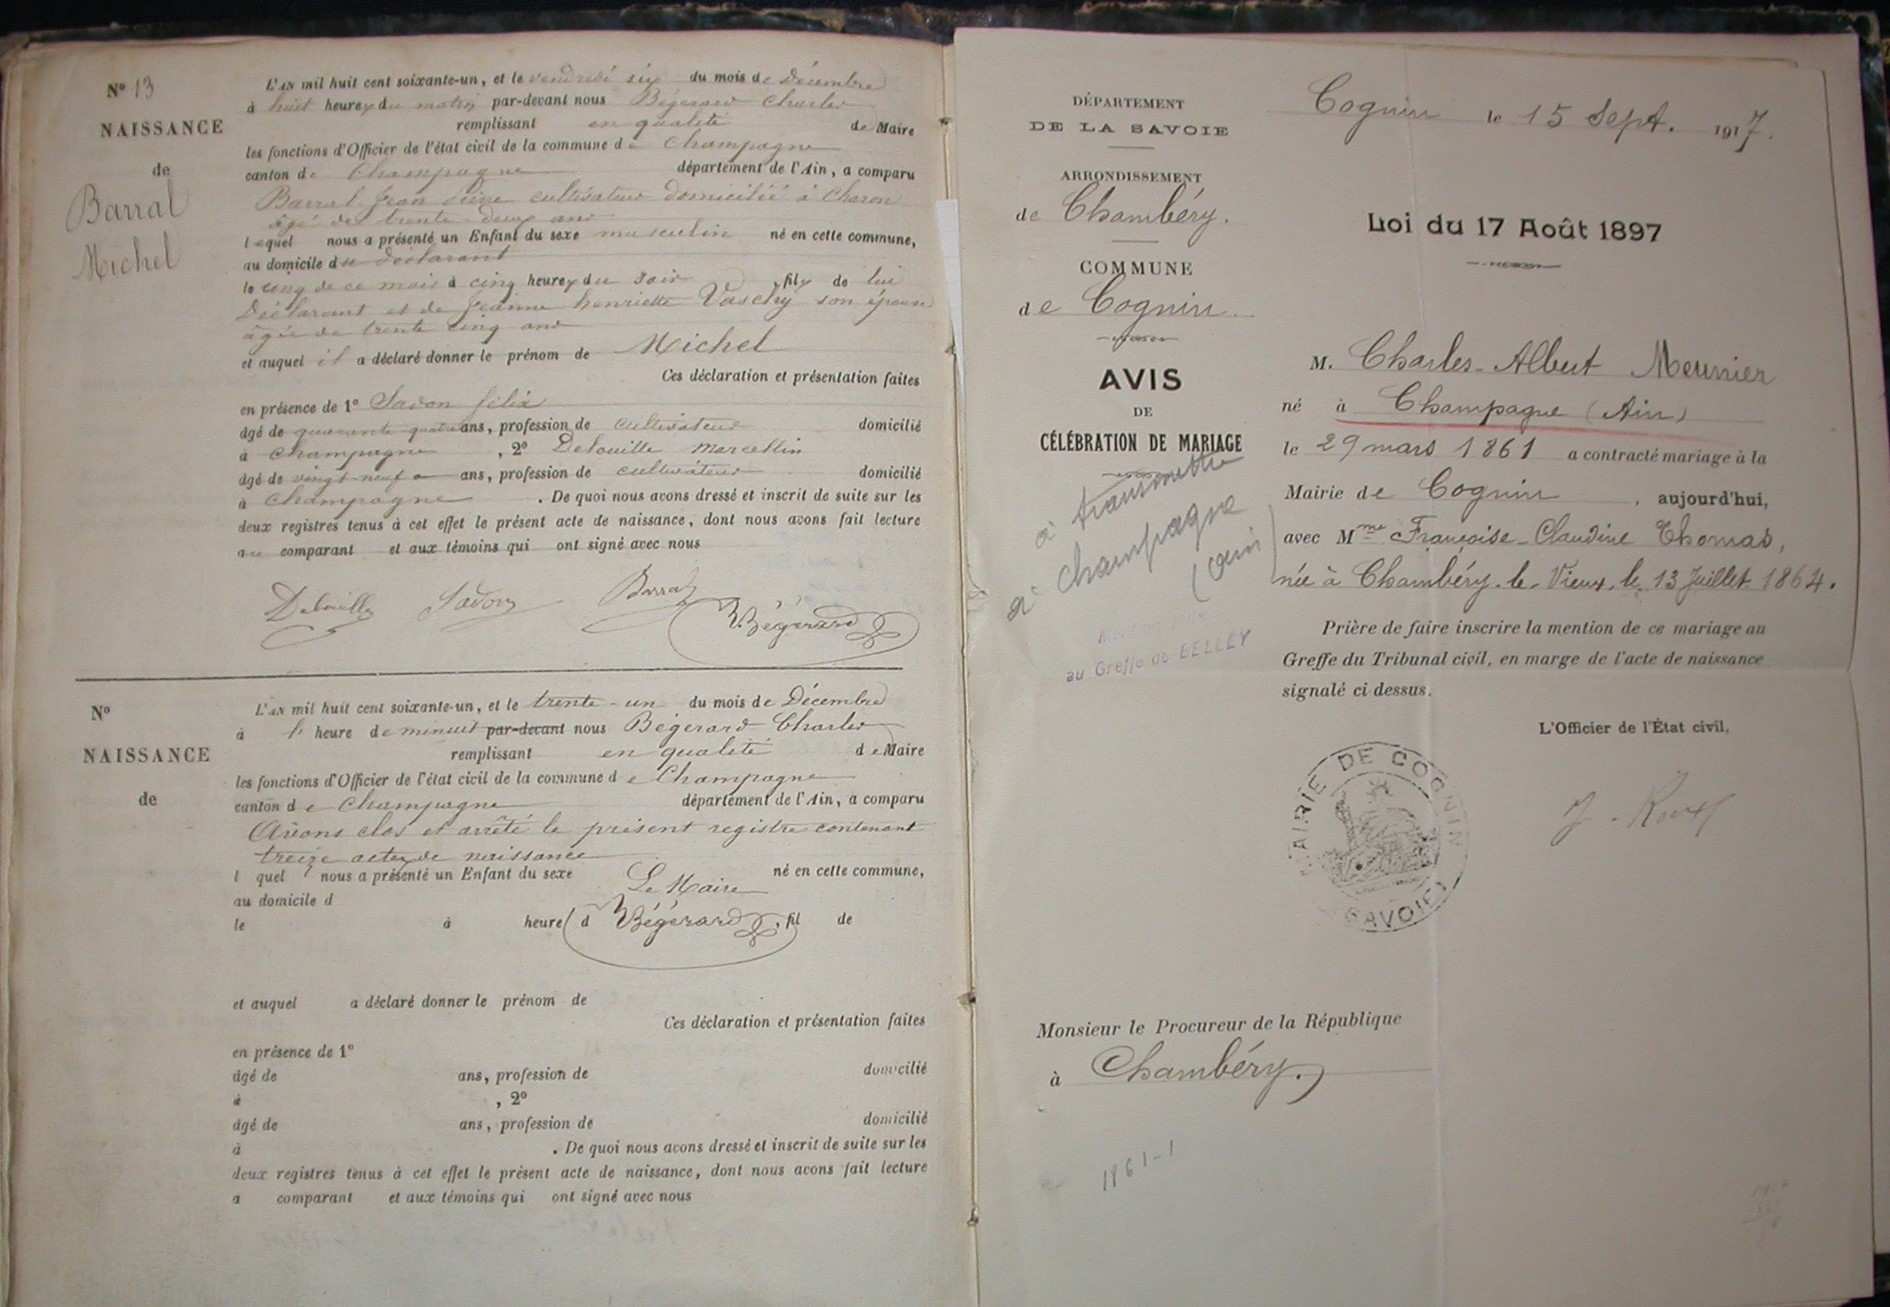 N° 13
NAISSANCE
de
Barral
Michel
L'AN mil huit cent soixante-un, et le vendredi six du mois de Décembre
à huit heures du matin par-devant nous Bégerard Charles
remplissant en qualité de Maire
les fonctions d'Officier de l'état civil de la commune de Champagne
canton de Champagne département de l'Ain, a comparu
Barral Jean cultivateur domicilié à Charon
âgé de trente-deux ans
lequel nous a présenté un Enfant du sexe masculin né en cette commune,
au domicile du déclarant
le cinq de ce mois à cinq heures du soir fils de lui
Déclarant et de Jeanne henriette Vaschy son épouse
âgée de trente cinq ans
et auquel il a déclaré donner le prénom de Michel
Ces déclaration et présentation faites
en présence de 1° Savon félix
âgé de quarante quatre ans, profession de cultivateur domicilié
à Champagne , 2° Delouille Marcellin
âgé de vingt-neuf ans, profession de cultivateur domicilié
à Champagne . De quoi nous avons dressé et inscrit de suite sur les
deux registres tenus à cet effet le présent acte de naissance, dont nous avons fait lecture
au comparant et aux témoins qui ont signé avec nous
Delouille Savon Barral
Bégerard
N°
NAISSANCE
de
L'AN mil huit cent soixante-un, et le trente-un du mois de Décembre
à h heure de minuit par-devant nous Bégerard Charles
remplissant en qualité de Maire
les fonctions d'Officier de l'état civil de la commune de Champagne
canton de Champagne département de l'Ain, a comparu
Avons clos et arrêté le présent registre contenant
treize actes de naissance
l quel nous a présenté un Enfant du sexe né en cette commune,
Le Maire
au domicile d
le à heure d Bégerard , fil de
et auquel a déclaré donner le prénom de
Ces déclaration et présentation faites
en présence de 1°
âgé de ans, profession de domicilié
à , 2°
âgé de ans, profession de domicilié
à . De quoi nous avons dressé et inscrit de suite sur les
deux registres tenus à cet effet le présent acte de naissance, dont nous avons fait lecture
a comparant et aux témoins qui ont signé avec nous
DÉPARTEMENT
DE LA SAVOIE
ARRONDISSEMENT
de Chambéry.
COMMUNE
de Cognin
AVIS
DE
CÉLÉBRATION DE MARIAGE
à transmettre
à champagne
(ain)
au Greffe de BELLEY
Cognin le 15 Sept. 1917.
Loi du 17 Août 1897
M. Charles-Albert Meunier
né à Champagne (Ain)
le 29 mars 1861 a contracté mariage à la
Mairie de Cognin, aujourd'hui,
avec Mme Françoise-Claudine Thomas,
née à Chambéry-le-Vieux, le 13 Juillet 1864.
Prière de faire inscrire la mention de ce mariage au
Greffe du Tribunal civil, en marge de l'acte de naissance
signalé ci-dessus.
L'Officier de l'État civil,
J. Roux
MAIRIE DE COGNIN
SAVOIE
Monsieur le Procureur de la République
à Chambéry.
1861-1